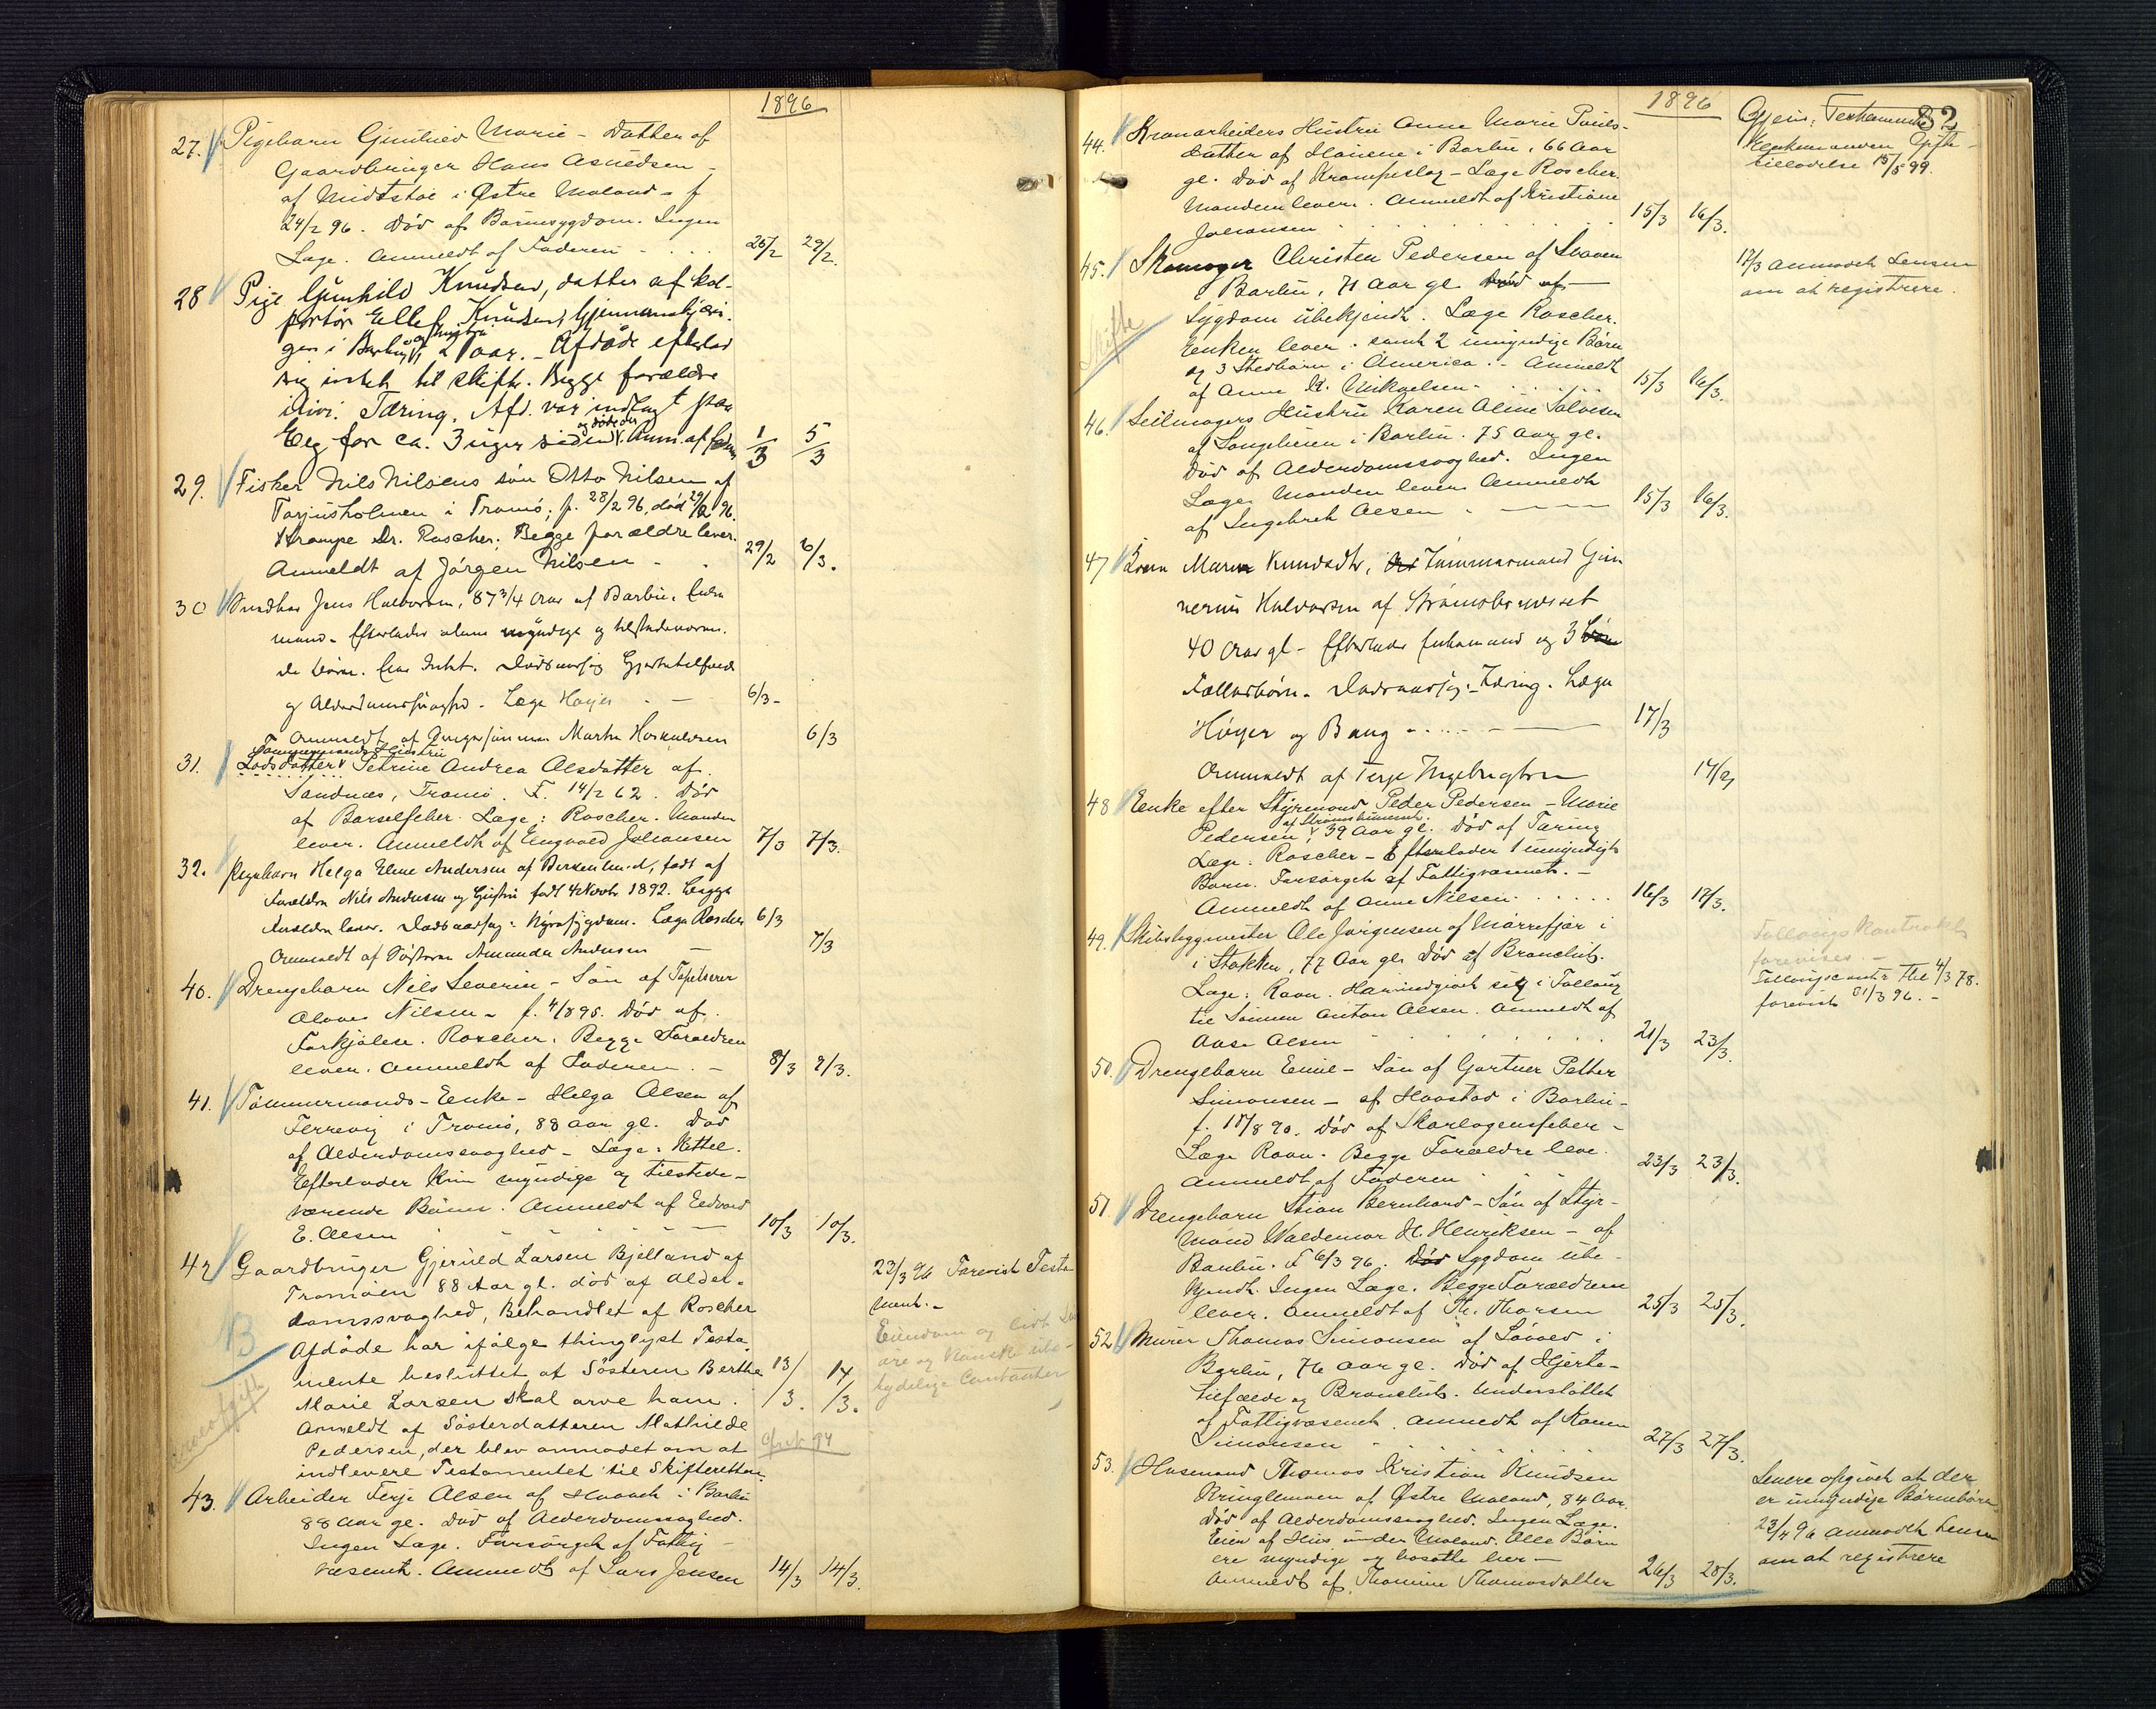 1896
27. Pigebarn Gunhild Marie - Datter af
Gaardbruger Hans Asuldsen -
af Midtstøe i Østre Moland - f
24/2 96. Død af Barnesygdom. Ingen
Læge. Anmeldt af Faderen - . . . 26/2 29/2.
28 Pige Gunhild Knudsen, datter af kol-
portør Ellef Knudsen, Gjennemskjærin-
gen i Barbu, og hustru 21 aar. - Afdøde efterlod
sig intet til skifte. Begge forældre
ilive. Tæring. Afd. var indlagt paa
Eeg for ca. 3 uger siden og døde der. Anm. af faderen 1/3 5/3
29. Fisker Nils Nilsens søn Otto Nilsen af
Torjusholmen i Tromø, f. 28/2 96, død 29/2 96.
Krampe Dr. Roscher. Begge forældre lever.
Anmeldt af Jørgen Nilsen - . 29/2 6/3.
30 Jens Halvorsen, 87 3/4 Aar af Barbu, Enke
mand - Efterlader alene myndige og tilstedeværen-
de Børn. Eier Intet. Dødsaarsag Hjertetilfælde
og Alderdomssvaghed - Læge Høyer . - 6/3 -
Anmeldt af Martin 6/3
31. Tømmermands Hustru
Lodsdatter Petrine Andrea Olsdatter af
Sandnæs, Tromø. F. 14/2 62. Død
af Barselfeber. Læge: Roscher. Manden
lever. Anmeldt af Engvald Johansen 7/3 7/3.
32. Pigebarn Helga Elene Andersen af Birkenlund, født af
Forældre Nils Andersen og Hustru født 4 Novbr 1892. Begge
Forældre lever. Dødsaarsag: Nyresygdom. Læge Roscher 6/3
Anmeldt af Søsteren Amanda Andersen - 7/3
40. Drengebarn Nils Severin - Søn af Tapetserer
Olaves Nilsen - f. 4/8 95. Død af
Forkjølelse. Roscher. Begge Forældren
lever. Anmeldt af Faderen . - 8/3 9/3.
41. Tømmermands-Enke - Helga Olsen af
Færvig i Tromø, 88 aar gl. Død
af Alderdomssvaghed - Læge: Kittel.
Efterlader Kun myndige og tilstede-
værende Børn. Anmeldt af Edvard
E. Olsen . . . - 10/3 10/3.
42 Gaardbruger Gjeruld Larsen Bjelland af
Tromøen 88 Aar gl. død af Alder-
domssvaghed, Behandlet af Roscher
Afdøde har ifølge thinglyst Testa-
mente besluttet at Søsteren Berthe
Marie Larsen skal arve ham. 13/3. 14/3.
Anmeldt af Søsterdatteren Mathilde
Pedersen, der blev anmodet om at
indlevere Testamentet til Skifteretten.
B
Arveafgift
23/3 96 Forevist Testa
ment. -
Eiendom og lidt
øre og Kanske ube-
tydelige Contanter
43. Arbeider Terje Olsen af i Barbu
88 aar gl. Død af Alderdomssvaghed.
Ingen Læge. Forsørget af Fattig-
væsenet. Anmeldt af Lars Jensen 14/3 14/3.
1896
82
44. Kranarbeiders Hustru Anne Marie Pouls-
datter af Havene i Barbu, 66 Aar
gl. Død af Krampeslag - Læge Roscher.
Manden lever. Anmeldt af Kristiane
Johansen . . . . . . 15/3 16/3.
Enkemanden Gifte-
tilladelse 15/5 99.
45. Skomager Christen Pedersen af
i Barbu, 71 Aar gl. Død af -
Sygdom ubekjendt. Læge Roscher.
Enken lever. samt 2 umyndige Børn
og 3 Stedbørn i America. - Anmeldt
af Anne K. Mikaelsen - . . . 15/3 16/3.
Skifte
17/3 anmodet Lensm
om at registrere.
46. Seilmagers Hustru Karen Aline Salvesen
af Songebuen i Barbu. 75 Aar gl.
Død af Alderdomssvaghed. Ingen
Læge. Manden lever. Anmeldt
af Ingebret Olsen . - 15/3 16/3.
47 Kone Maren Knudsdtr, Tømmermand Gun
nerius Halvorsen af Strømsbusneset
40 Aar gl - Efterlader Enkemand og 3
Fællesbørn - Dødsaarsag: Tæring. Læge
Høyer og Bang - . . . . - 17/3
Anmeldt af Terje Ingebrigtsen 17/3
48 Enke efter Styrmand Peder Pedersen - Marie
Pedersen af Strømsbuneset. 39 Aar gl. Død af Tæring
Læge: Roscher - Efterlader 1 umyndigt
Barn. Forsørget af Fattigvæsenet. -
Anmeldt af Anne Nilsen . . . . . 16/3 17/3.
49. Skibsbygmester Ole Jørgensen af Narrefjær i
i Stokken, 77 Aar gl. Død af Bronchit.
Læge: Ravn. Har indgivet sig i Follaug
til Sønnen Anton Olsen. Anmeldt af
Aase Olsen . . . . . 21/3 23/3.
Follaugs Kontrakt
forevises. -
Follaugscontr thl 4/3 78.
forevist 31/3 96. -
50. Drengebarn Emil - Søn af Gartner Petter
Simonsen - af Haastad i Barbu -
f. 17/8 90. Død af Skarlagensfeber -
Læge Ravn. Begge Forældre leve.
Anmeldt af Faderen . . . 23/3 23/3.
51 Drengebarn Stian Bernhard - Søn af Styr-
mand Waldemar H. Henriksen - af
Barbu. F 6/3 96. Død Sygdom ube-
kjendt. Ingen Læge. Begge Forældrene
lever. Anmeldt af Th. Thorsen 25/3 25/3.
52 Murer Thomas Simonsen af Løvold i
Barbu, 76 Aar gl. Død af Hjerte-
tilfælde og Bronchit. Understøttet
af Fattigvæsenet. Anmeldt af Karen
Simonsen . . . . . 27/3 27/3.
53. Husmand Thomas Kristian Knudsen
Kringlemoen af Østre Moland, 84 Aar.
Død af Alderdomssvaghed. Ingen Læge.
Eier af Hus under Moland. Alle Børn
ere myndige og bosatte her -
Anmeldt af Thomine Thomasdatter 26/3 28/3.
Senere opgivet at der
er umyndige Børnebørn
23/4 96 anmodet Lensm
om at registrere